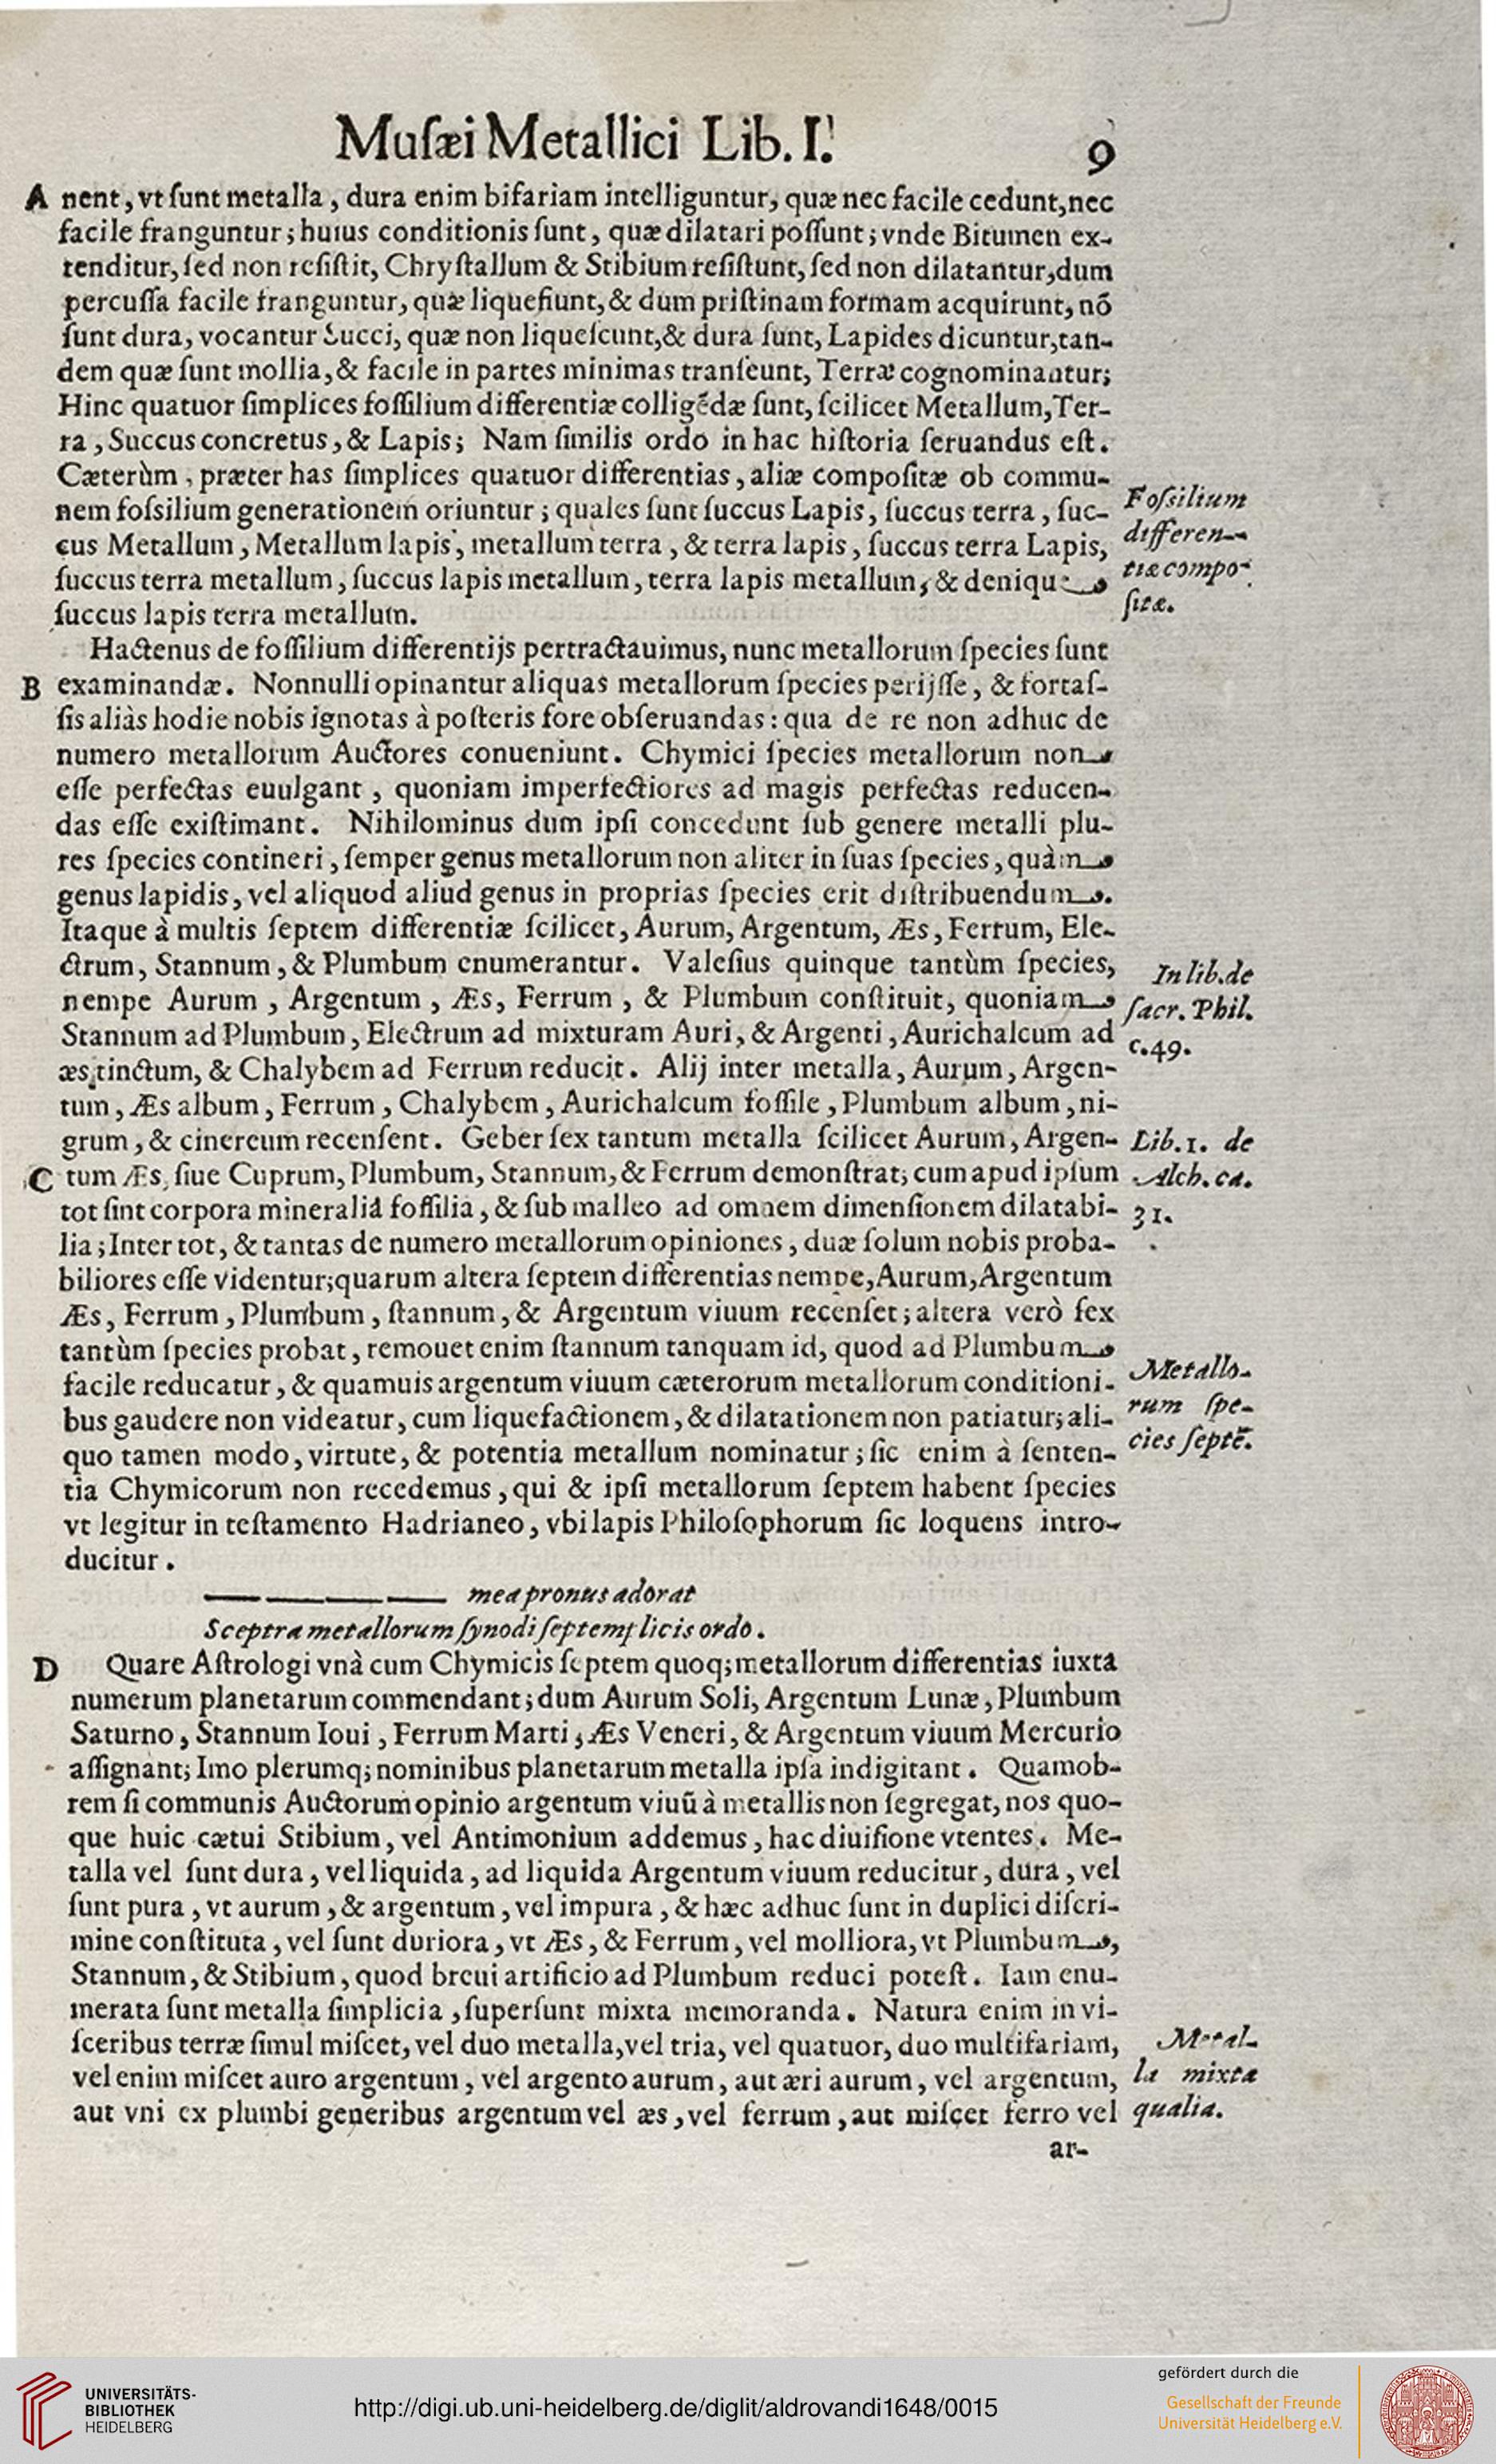 Muſæi Metallici Lib. I.
9
A nent, vt ſunt metalla, dura enim bifariam intelliguntur, quæ nec facile cedunt, nec
facile franguntur; huius conditionis ſunt, quæ dilatari poſſunt; vnde Bitumen ex-
tenditur, ſed non reſiſtit, Chryſtallum & Stibium reſiſtunt, ſed non dilatantur, dum
percuſſa facile franguntur, quæ liquefiunt, & dum priſtinam formam acquirunt, nõ
ſunt dura, vocantur Succi, quæ non liqueſcunt, & dura ſunt, Lapides dicuntur, tan-
dem quæ ſunt mollia, & facile in partes minimas tranſeunt, Terræ cognominantur;
Hinc quatuor ſimplices foſſilium differentiæ colligẽdæ ſunt, ſcilicet Metallum, Ter-
ra, Succus concretus, & Lapis; Nam ſimilis ordo in hac hiſtoria ſeruandus eſt.
Cæterùm, præter has ſimplices quatuor differentias, aliæ compoſitæ ob commu-
nem foſsilium generationem oriuntur; quales ſunt ſuccus Lapis, ſuccus terra, ſuc-
cus Metallum, Metallum lapis, metallum terra, & terra lapis, ſuccus terra Lapis,
ſuccus terra metallum, ſuccus lapis metallum, terra lapis metallum, & denique
ſuccus lapis terra metallum.
Foſsilium
differen-
tiæ compo-
ſitæ.
Hactenus de foſſilium differentijs pertractauimus, nunc metallorum ſpecies ſunt
B examinandæ. Nonnulli opinantur aliquas metallorum ſpecies perijſſe, & fortaſ-
ſis aliàs hodie nobis ignotas à poſteris fore obſeruandas: qua de re non adhuc de
numero metallorum Auctores conueniunt. Chymici ſpecies metallorum non
eſſe perfectas euulgant, quoniam imperfectiores ad magis perfectas reducen-
das eſſe exiſtimant. Nihilominus dum ipſi concedunt ſub genere metalli plu-
res ſpecies contineri, ſemper genus metallorum non aliter in ſuas ſpecies, quàm
genus lapidis, vel aliquod aliud genus in proprias ſpecies erit diſtribuendum.
Itaque à multis ſeptem differentiæ ſcilicet, Aurum, Argentum, Æs, Ferrum, Ele-
ctrum, Stannum, & Plumbum enumerantur. Valeſius quinque tantùm ſpecies,
nempe Aurum, Argentum, Æs, Ferrum, & Plumbum conſtituit, quoniam
Stannum ad Plumbum, Electrum ad mixturam Auri, & Argenti, Aurichalcum ad
æs tinctum, & Chalybem ad Ferrum reducit. Alij inter metalla, Aurum, Argen-
tum, Æs album, Ferrum, Chalybem, Aurichalcum foſſile, Plumbum album, ni-
grum, & cinereum recenſent. Geber ſex tantum metalla ſcilicet Aurum, Argen-
C tum Æs, ſiue Cuprum, Plumbum, Stannum, & Ferrum demonſtrat; cum apud ipſum
tot ſint corpora mineralia foſſilia, & ſub malleo ad omnem dimenſionem dilatabi-
lia; Inter tot, & tantas de numero metallorum opiniones, duæ ſolum nobis proba-
biliores eſſe videntur; quarum altera ſeptem differentias nempe, Aurum, Argentum
Æs, Ferrum, Plumbum, ſtannum, & Argentum viuum recenſet; altera verò ſex
tantùm ſpecies probat, remouet enim ſtannum tanquam id, quod ad Plumbum
facile reducatur, & quamuis argentum viuum cæterorum metallorum conditioni-
bus gaudere non videatur, cum liquefactionem, & dilatationem non patiatur; ali-
quo tamen modo, virtute, & potentia metallum nominatur; ſic enim à ſenten-
tia Chymicorum non recedemus, qui & ipſi metallorum ſeptem habent ſpecies
vt legitur in teſtamento Hadrianeo, vbi lapis Philoſophorum ſic loquens intro-
ducitur.
In lib. de
ſacr. Phil.
c. 49.
Lib. 1. de
Alch. ca.
31.
Metallo-
rum ſpe-
cies ſeptẽ.
— — — — mea pronus adorat
Sceptra metallorum ſynodi ſeptemplicis ordo.
D Quare Aſtrologi vnà cum Chymicis ſeptem quoq; metallorum differentias iuxta
numerum planetarum commendant; dum Aurum Soli, Argentum Lunæ, Plumbum
Saturno, Stannum Ioui, Ferrum Marti, Æs Veneri, & Argentum viuum Mercurio
aſſignant; Imo plerumq; nominibus planetarum metalla ipſa indigitant. Quamob-
rem ſi communis Auctorum opinio argentum viuũ à metallis non ſegregat, nos quo-
que huic cætui Stibium, vel Antimonium addemus, hac diuiſione vtentes. Me-
talla vel ſunt dura, vel liquida, ad liquida Argentum viuum reducitur, dura, vel
ſunt pura, vt aurum, & argentum, vel impura, & hæc adhuc ſunt in duplici diſcri-
mine conſtituta, vel ſunt duriora, vt Æs, & Ferrum, vel molliora, vt Plumbum,
Stannum, & Stibium, quod breui artificio ad Plumbum reduci poteſt. Iam enu-
merata ſunt metalla ſimplicia, ſuperſunt mixta memoranda. Natura enim in vi-
ſceribus terræ ſimul miſcet, vel duo metalla, vel tria, vel quatuor, duo multifariam,
vel enim miſcet auro argentum, vel argento aurum, aut æri aurum, vel argentum,
aut vni ex plumbi generibus argentum vel æs, vel ferrum, aut miſcet ferro vel
Metal-
la mixta
qualia.
ar-
UNIVERSITÄTS-
BIBLIOTHEK
HEIDELBERG
http://digi.ub.uni-heidelberg.de/diglit/aldrovandi1648/0015
gefördert durch die
Gesellschaft der Freunde
Universität Heidelberg e.V.